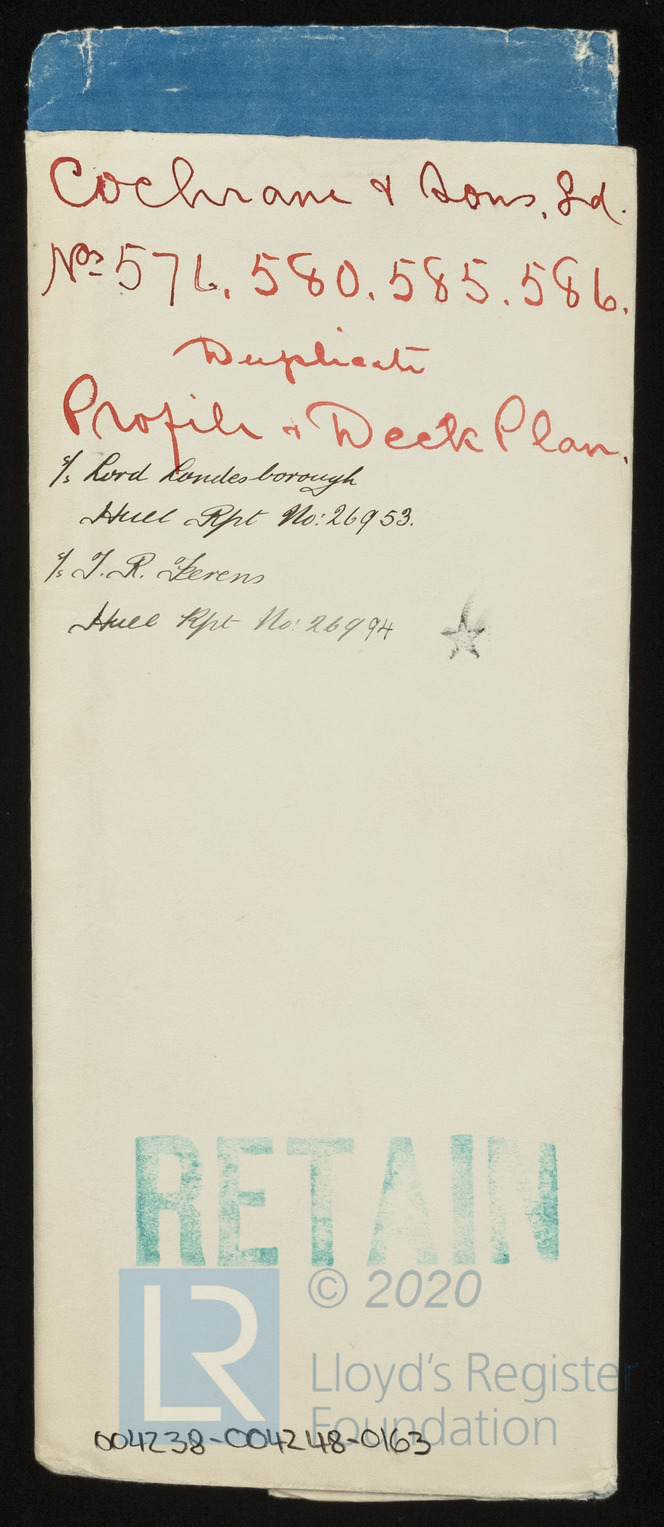 Cochrane & Sons, Ld.
Nos 576. 580. 585. 586.
Duplicate
Profile & Deck Plan.
s/s Lord Londesborough
Hull Rpt No: 26953.
s/s T. R. Ferens
Hull Rpt No: 26994
RETAIN
LR
© 2020
Lloyd's Register
Foundation
004238-004248-0163